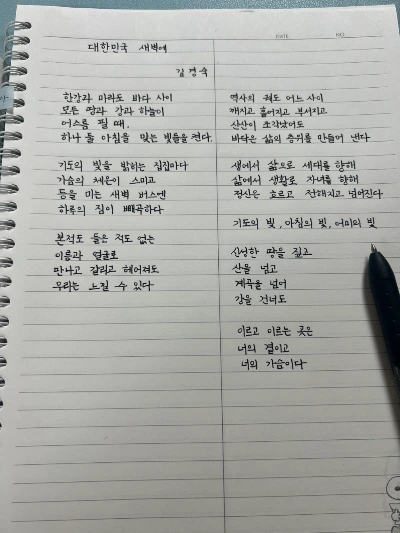 DATE
NO
대한민국 새벽에
김경숙
한강과 마라도 바다 사이
모든 땅과 강과 하늘이
어스름 필 때,
하나 둘 아침을 맞는 빛들을 켠다.
기도의 빛을 밝히는 집집마다
가슴의 체온이 스미고
등을 미는 새벽 버스엔
하루의 짐이 빼곡하다
본적도 들은 적도 없는
이름과 얼굴로
만나고 갈리고 헤어져도
우리는 느낄 수 있다
역사의 궤도 어느 사이
깨지고 흩어지고 부서지고
산산이 조각났어도
바닥은 삶의 층위를 만들어 낸다
생에서 삶으로 세대를 향해
삶에서 생활로 자녀를 향해
정신은 흐르고 전해지고 넓어진다
기도의 빛, 아침의 빛, 어미의 빛
신성한 땅을 짚고
산을 넘고
계곡을 넘어
강을 건너도
이르고 이르는 곳은
너의 곁이고
너의 가슴이다